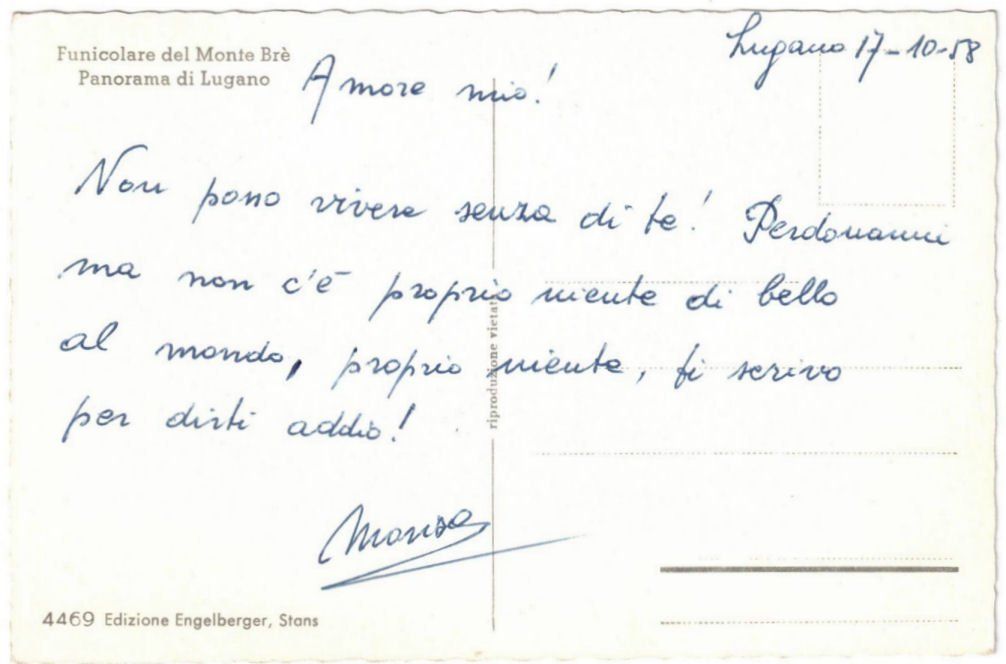 Funicolare del Monte Brè
Panorama di Lugano
Lugano 17-10-58
Amore mio!
Non posso vivere senza di te! Perdonami
ma non c'è proprio niente di bello
al mondo, proprio niente, ti scrivo
per dirti addio!
Marisa
riproduzione vietata
4469 Edizione Engelberger, Stans